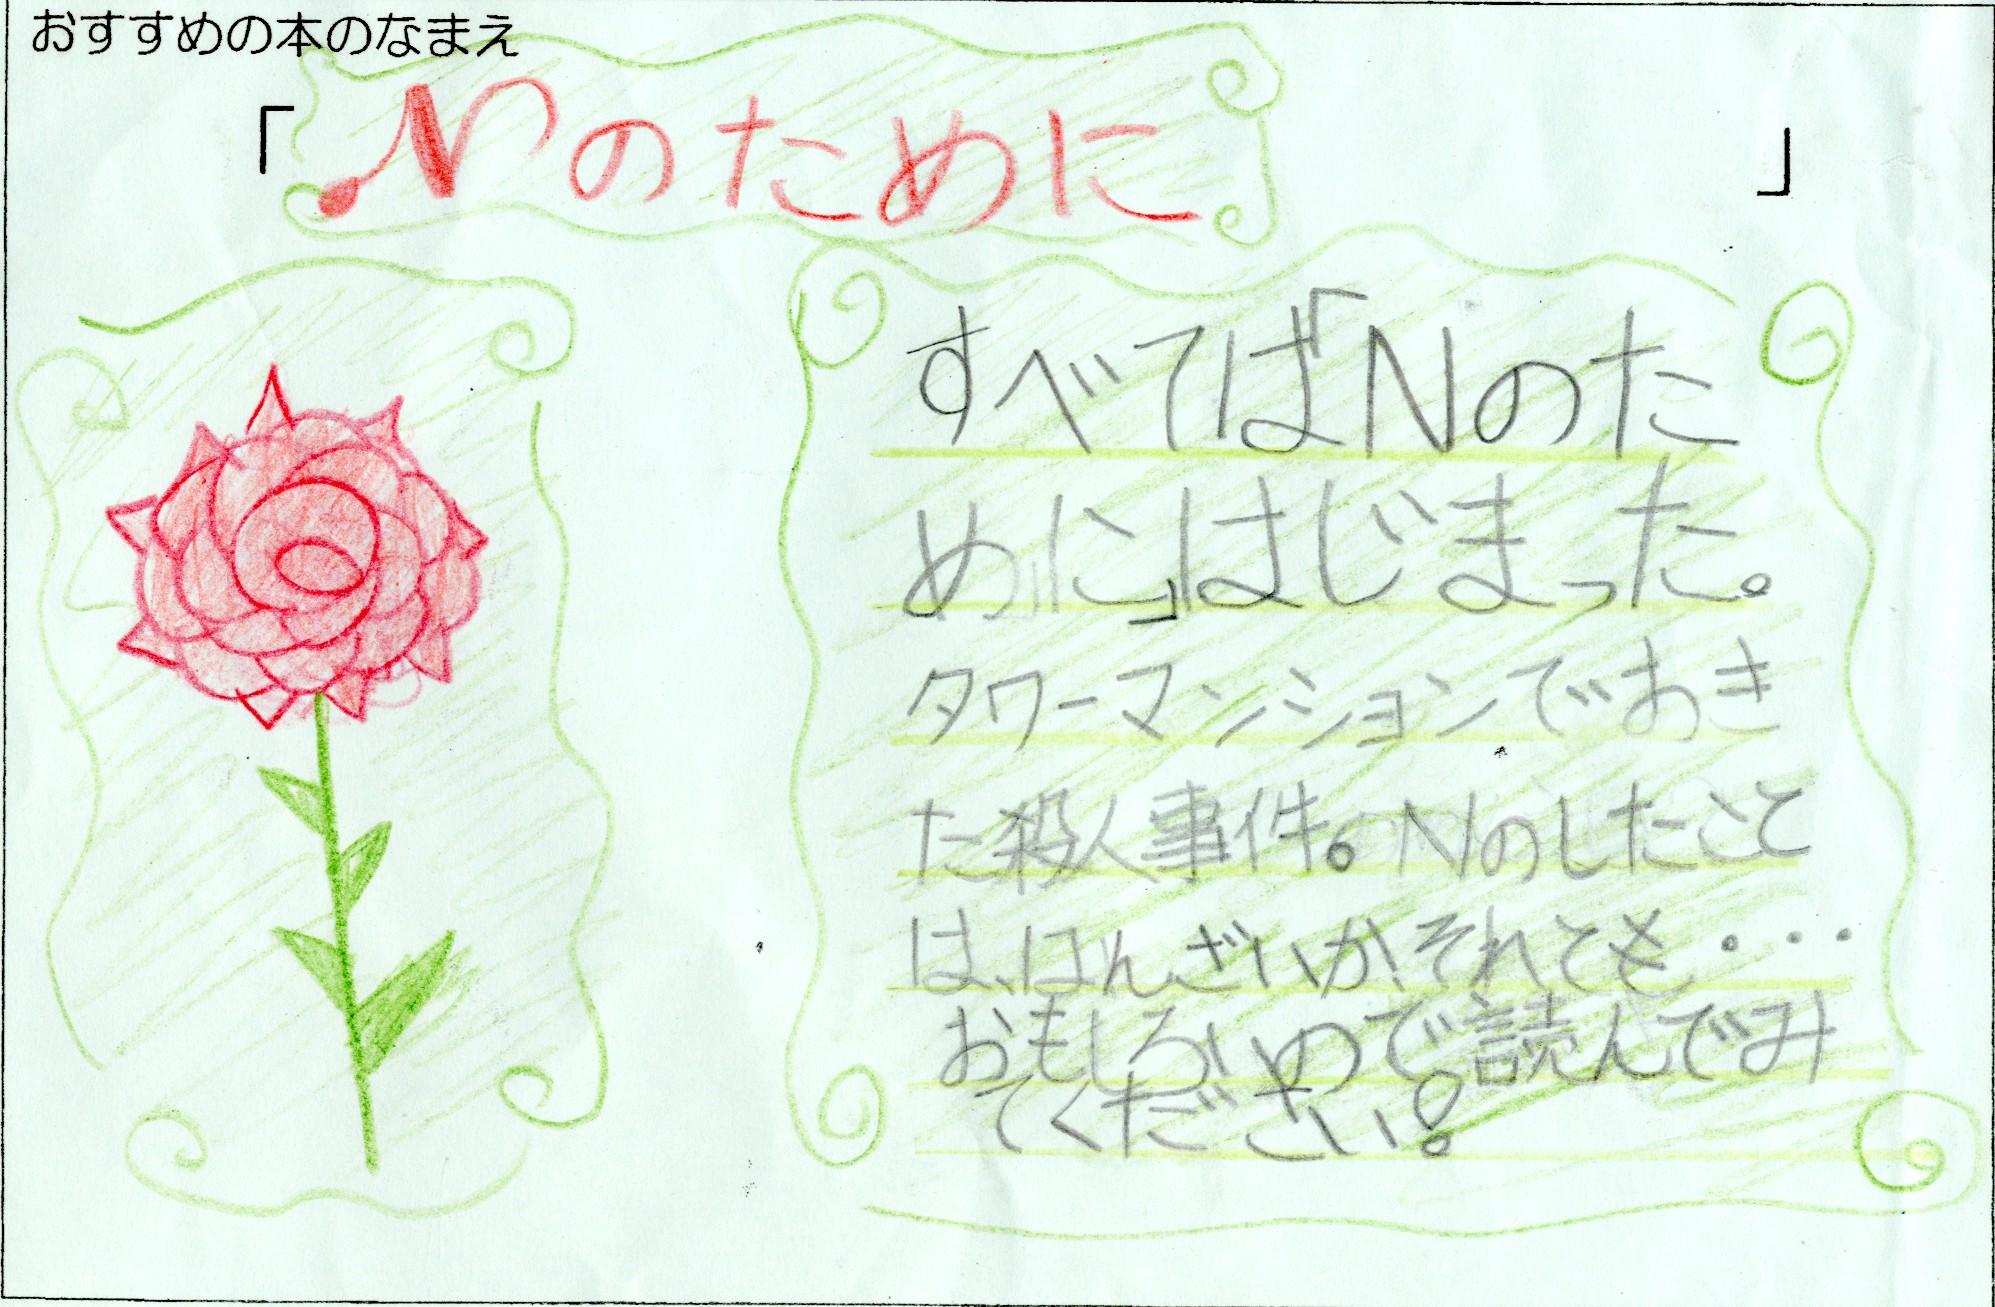 おすすめの本のなまえ
「Nのために」
すべては「Nのた
めに」はじまった。
タワーマンションでおき
た殺人事件。Nのしたこと
は、はんざいか、それとも・・・
おもしろいので読んでみ
てください!